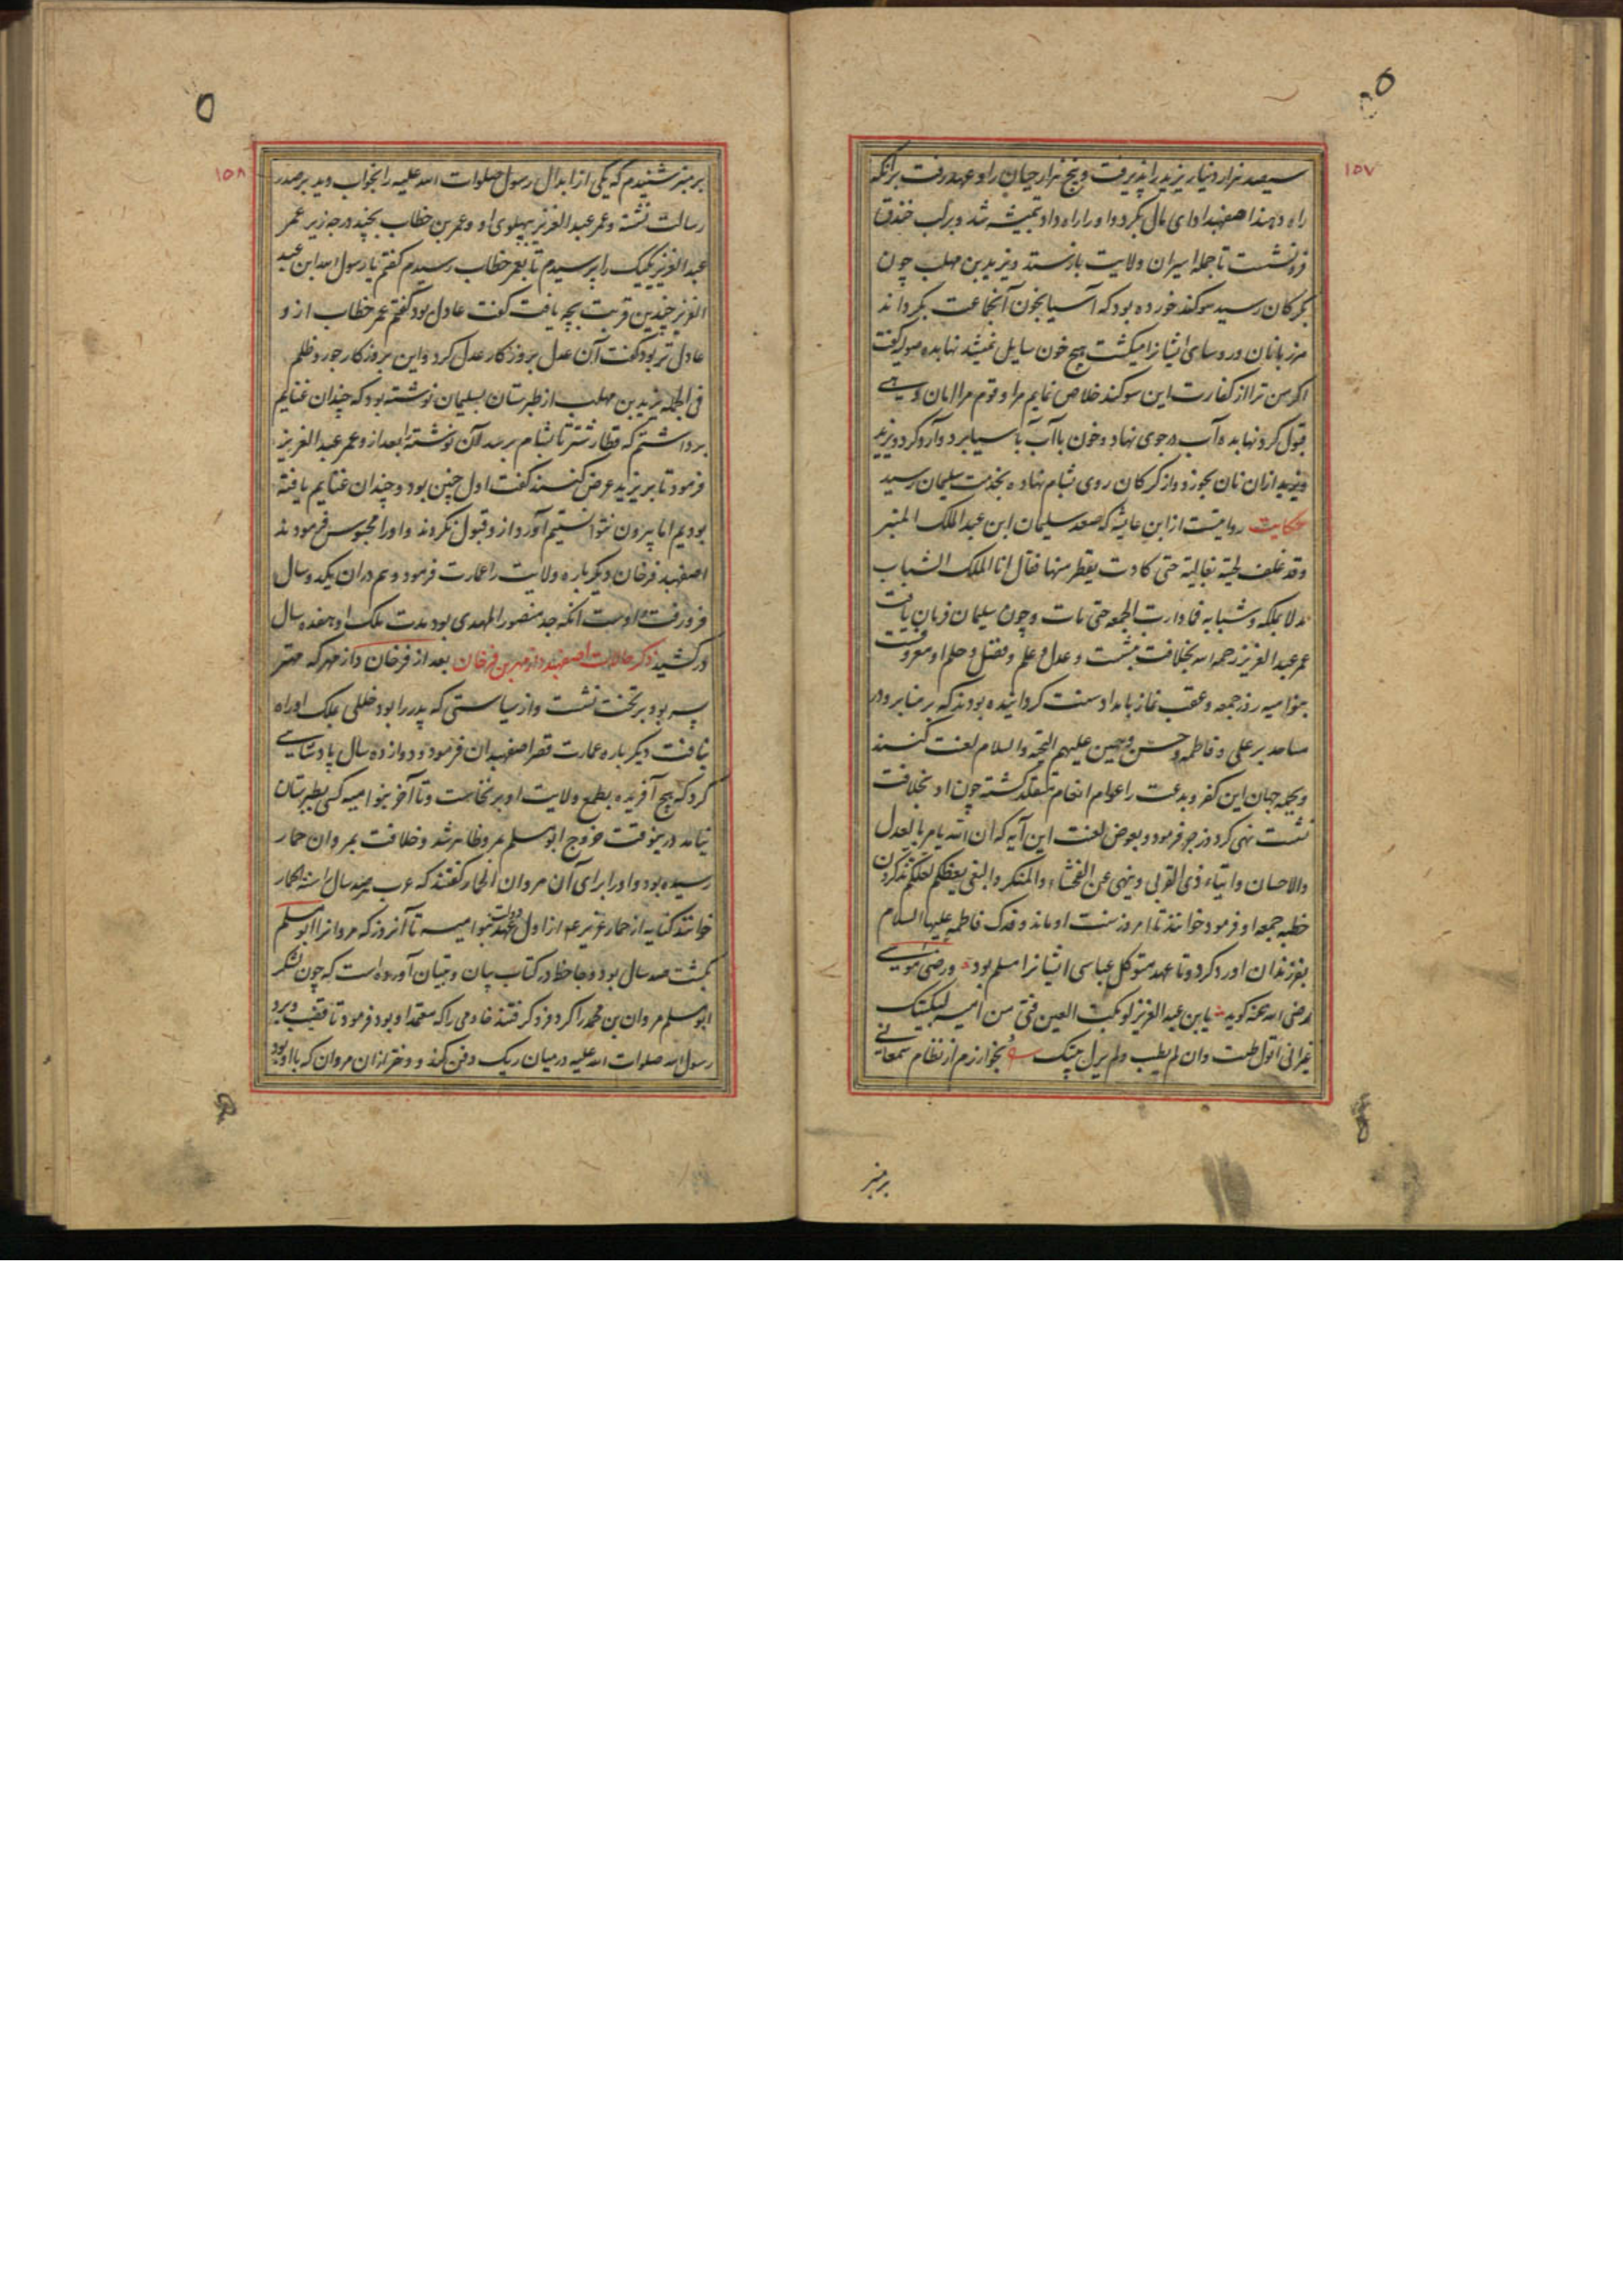 ١٥٧
سیصد هزار دینار یزید را پذیرفت و پنج هزار جیان را و عهد رفت برانکه
راه دهند اصفهبد ادای مال بکرد و او را راه داد تمیشه شد و بر لب خندق
فرو نشست تا جمله اسیران ولایت بازستد و یزید بن مهلب چون
بکرکان رسید سوکند خورده بود که آسیا بخون آنجماعت بکرداند
مرزبانان و روسای ایشانرا میکشت هیچ خون سایل نمیشد نهابده صوله کفت
اکر من ترا از کفارت این سوکند خلاص نمایم مرا و قوم مرا امان دهی
قبول کرد نهابده آب در جوی نهاد و خون با آب بآسیا برد و آرد کرد و یزید
از ان نان بخورد و از کرکان روی بشام نهاده بخدمت سلیمان رسید
حکایت روایتست از ابن عایشه که صعد سلیمان ابن عبد الملک المنبر
وقد غلف لحیته بغالیة حتی کادت یقطر منها فقال انا الملک الشباب
مدلا بملکه و شبابه فما دارت الجمعه حتی مات و چون سلیمان فرمان یافت
عمر عبد العزیز رحمه الله بخلافت بنشست و عدل و علم و فضل و حلم او معروفست
بنوامیه روز جمعه و عقب نماز بامداد سنت کردانیده بودند که بر منابر و در
مساجد بر علی و فاطمه و حسن و حسین علیهم التحیه و السلام لعنت کنند
و بجمله جهان این کفر و بدعت را عوام انعام متقلد کشته چون او بخلافت
نشست نهی کرد و زجر فرمود و بعوض لعنت این آیه که ان الله یامر بالعدل
والاحسان وایتاء ذی القربی وینهی عن الفحشاء والمنکر والبغی یعظکم لعلکم تذکرون
خطبه جمعه او فرمود خوانند تا امروز سنت او ماند و فدک فاطمه علیها السلام
بفرزندان او رد کرد و تا عهد متوکل عباسی ایشانرا مسلم بود و رضی موسی
رضی الله عنه کوید یا بن عبد العزیز لو بکت العین فتی من امیه لبکیتک
غیر انی اقول طبت وان لم یطب ولم یزل بیتک بخوارزم از نظام سمعانی
بر منبر
١٥٨
بر منبر شنیدم که یکی از ابدال رسول صلوات الله علیه را بخواب دید بر صدر
رسالت نشسته و عمر عبد العزیز بپهلوی او و عمر بن خطاب بچند درجه زیر عمر
عبد العزیز یکیک را پرسیدم تا بعمر خطاب رسیدم کفتم یا رسول الله ابن عبد
العزیز چندین قربت بچه یافت کفت عادل بود کفتم عمر خطاب از و
عادل تر بود کفت آن عدل بروزکار عدل کرد و این بروزکار جور و ظلم
فی الجمله یزید بن مهلب از طبرستان بسلیمان نوشته بود که چندان غنایم
برداشتم که قطار شتر تا بشام برسد آن نوشته را بعد از و عمر عبد العزیز
فرمود تا بر یزید عرض کنند کفت اول چنین بود و چندان غنایم یافته
بودیم اما بیرون نتوانستیم آورد از و قبول نکردند و او را محبوس فرمودند
اصفهبد فرخان دیکر باره ولایت را عمارت فرمود و هم در ان یکدو سال
فرو رفت و اوست آنکه جد منصور المهدی بود مدت ملک او هفده سال
در کشید ذکر حالات اصفهبد داذمهر بن فرخان بعد از فرخان داذمهر که مهتر
پسر بود بر تخت نشست و از سیاستی که پدر را بود خللی بملک او راه
نیافت دیکر باره عمارت قصر اصفهبدان فرمود و دوازده سال پادشاهی
کرد که هیچ آفریده بطمع ولایت او بر نخاست و تا آخر بنوامیه کسی بطبرستان
نیامد درینوقت خروج ابومسلم بمرو ظاهر شد و خلافت بمروان حمار
رسیده بود و او را برای آن مروان الحمار کفتند که عرب صد سال را سنه الحمار
خوانند کنایه از حمار عزیر ع و از اول عهد دولت بنوامیه تا آنروز که مروانرا ابومسلم
بکشت صد سال بود و جاحظ در کتاب بیان و تبیان آورده است که چون لشکر
ابومسلم مروان بن محمد را کرد فرو کرفتند خادمی را که معتمد او بود فرمود تا قضیب و برد
رسول الله صلوات الله علیه در میان ریک دفن کند و دختر از ان مروان که با او بود